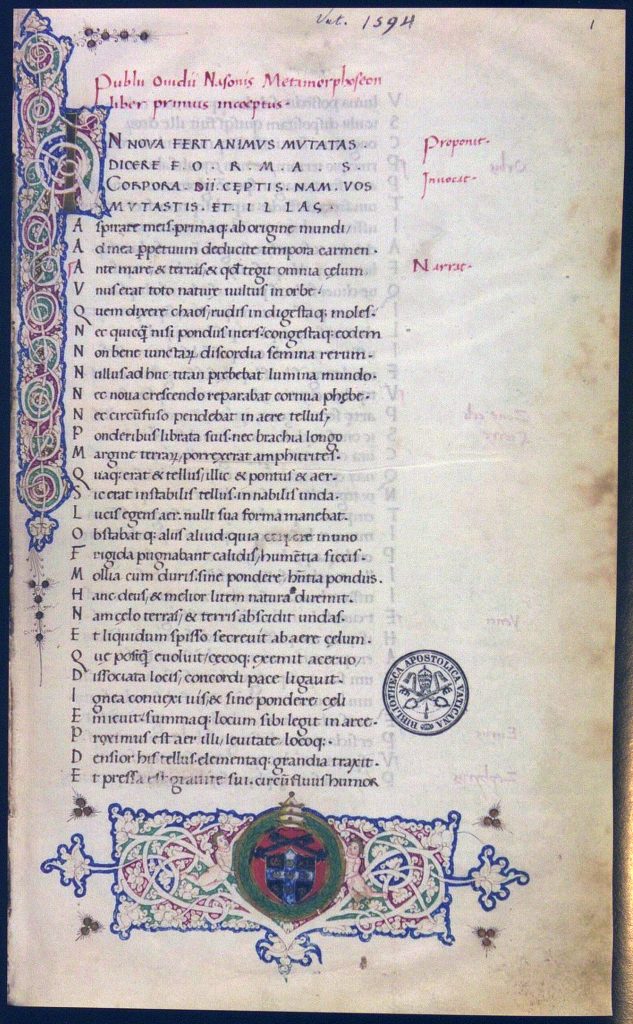 Vat. 1594
1
Publii Ovidii Nasonis Metamorphoseon
liber primus incoeptus·
IN NOVA FERT ANIMVS MVTATAS
DICERE FORMAS
CORPORA. DII CEPTIS. NAM. VOS
MVTASTIS. ET ILLAS.
Aspirate meis. primaq; ab origine mundi/
Ad mea ꝑpetuum deducite tempora carmen·
Ante mare & terras/& qđ tegit omnia celum
Vnus erat toto nature vultus in orbe·
Quem dixere chaos/rudis indigestaq; moles·
Nec quicq̃ nisi pondus iners·congestaq; eodem
Non bene iunctaꝝ discordia semina rerum·
Nullus adhuc titan prebebat lumina mundo·
Nec noua crescendo reparabat cornua phebe·
Nec circũfuso pendebat in aere tellus/
Ponderibus librata suis·nec brachia longo
Margine terraꝝ porrexerat amphitrites·
Quaq; erat & tellus/illic & pontus & aer·
Sic erat instabilis tellus·innabilis unda·
Lucis egens aer·nulli sua forma manebat·
Obstabat q; aliis aliud·quia corpore in uno
Frigida pugnabant calidis/humẽtia siccis·
Mollia cum duris·sine pondere hñtia pondus.
Hanc deus/& melior litem natura diremit·
Nam celo terras/& terris abscidit undas·
Et liquidum spisso secreuit ab aere celum·
Que postq̃ euoluit/cecoq; exemit aceruo/
Dissociata locis/concordi pace ligauit·
Ignea conuexi uis/& sine pondere celi
Emicuit·summaq; locum sibi legit in arce·
Proximus est aer illi/leuitate locoq;·
Densior his tellus·elementaq; grandia traxit·
Et pressa est grauitate sui·circũfluus humor
Proponit·
Inuocat·
Narrat·
BIBLIOTHECA APOSTOLICA VATICANA